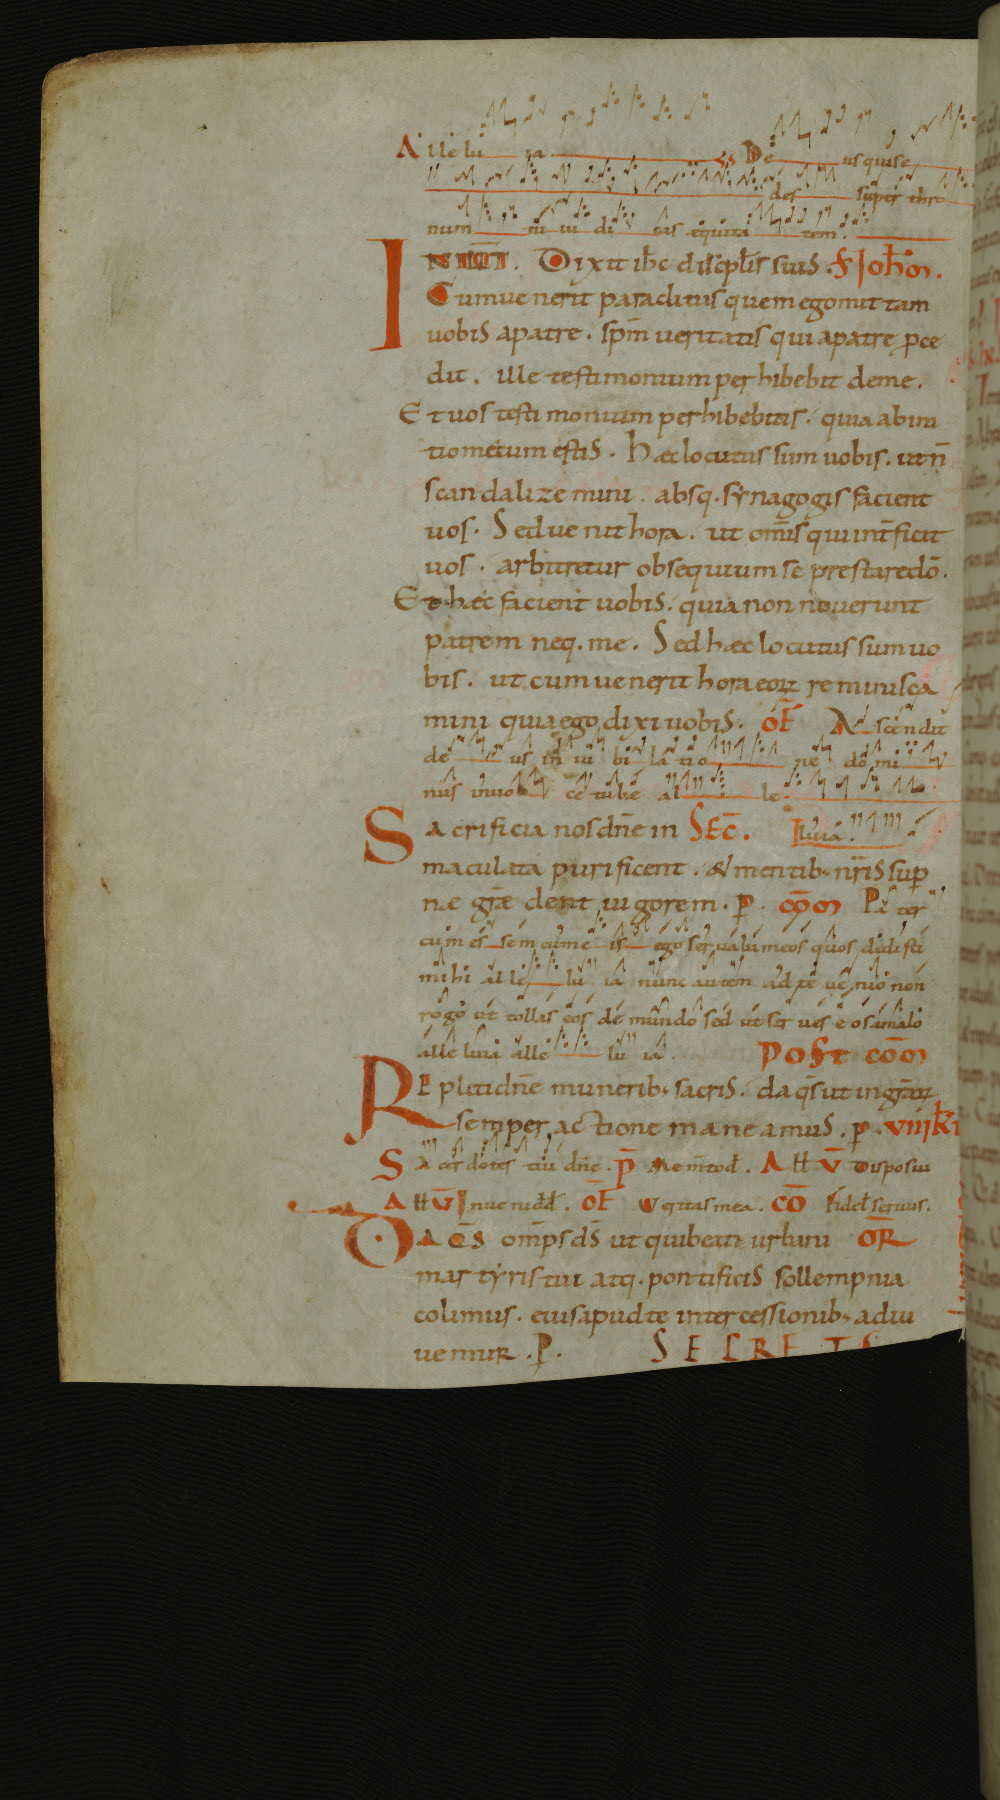 Alle lu ia De us qui se
des super thro
num tu iu di cas equita tem.
IN ILLT. Dixit ihc discplis suis. S IohM.
Cum uenerit paraclitus quem ego mittam
uobis apatre. spm ueritatis qui apatre pce
dit. ille testimonium perhibebit deme.
Et uos testimonium perhibebitis. quia abini
tio mecum estis. Hæc locutus sum uobis. ut n̄
scandalizemini. absq. synagogis facient
uos. Sed uenit hora. ut omīs qui int̄ficit
uos. arbitretur obsequium se prestare dō.
Et hæc facient uobis. quia non nouerunt
patrem neq. me. Sed hæc locutus sum uo
bis. ut cum uenerit hora eoꝝ reminisca
mini quia ego dixi uobis. OF̄ Ascendit
de us in iu bi la tio ne domi
nus in uo ce tube al le
Sacrificia nos dn̄e in SEC̄. luia.
maculata purificent. & mentib; nr̄is sup
næ gr̄æ dent uigorem. p. CŌM Pa ter
cum es sem cum e is ego seruabam eos quos dedisti
mihi alle lu ia nunc autem ad te uenio non
rogo ut tollas eos de mundo sed ut ser ues e os amalo
alle luia alle lu ia. POST CŌM
Repleti dn̄e munerib; sacris. da qs̄ ut in gr̄aꝝ
semper actione maneamus. p. VIIII kL I
Sacerdotes tui dn̄e. P̄ Mem̄to d. All V̄ Disposui
All V̄ Inueni dd. OF̄ Veritas mea. CŌ Fidel seruus.
DA QS̄ omps ds̄ ut qui beati urbani OR̄
martyris tui atq. pontificis sollempnia
colimus. eius apud te intercessionib; adiu
uemur. P. SECRETA